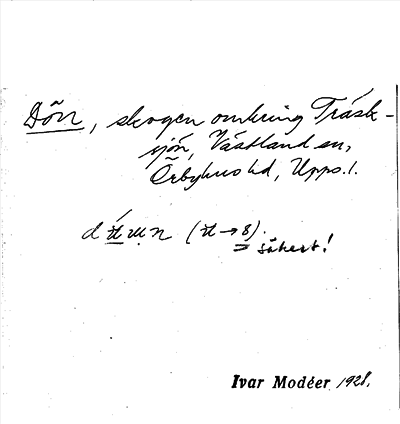 Dön, skogen omkring Träsk-
sjön, Västland sn,
Örbyhus hd, Upps. l.
säkert!
Ivar Modéer 1928.